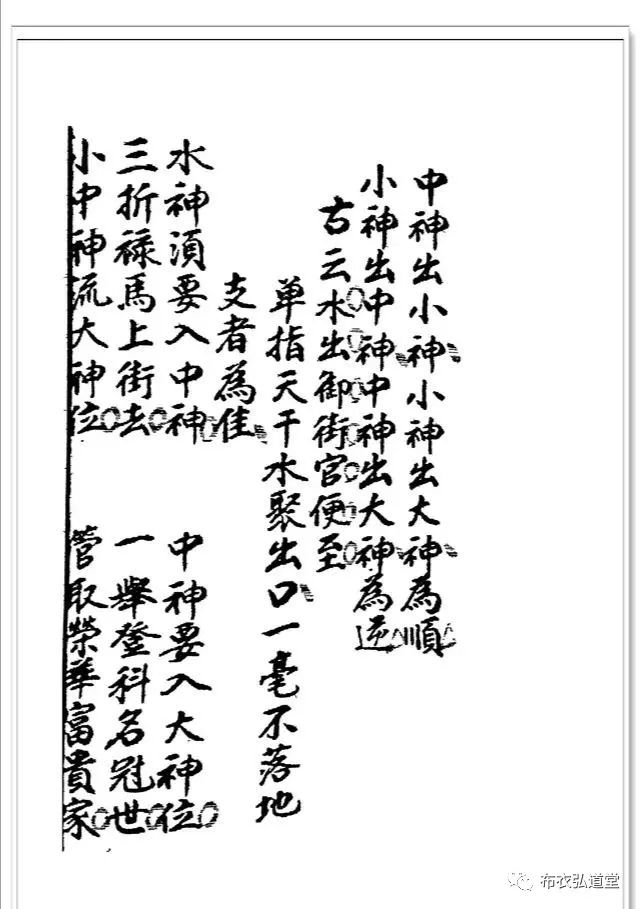 中神出小神小神出大神為順
小神出中神中神出大神為逆
古云水出御街官便至
單指天干水聚出口一毫不落地
支者為佳
水神須要入中神 中神要入大神位
三折祿馬上街去 一舉登科名冠世
小中神流大神位 管取榮華富貴家
布衣弘道堂